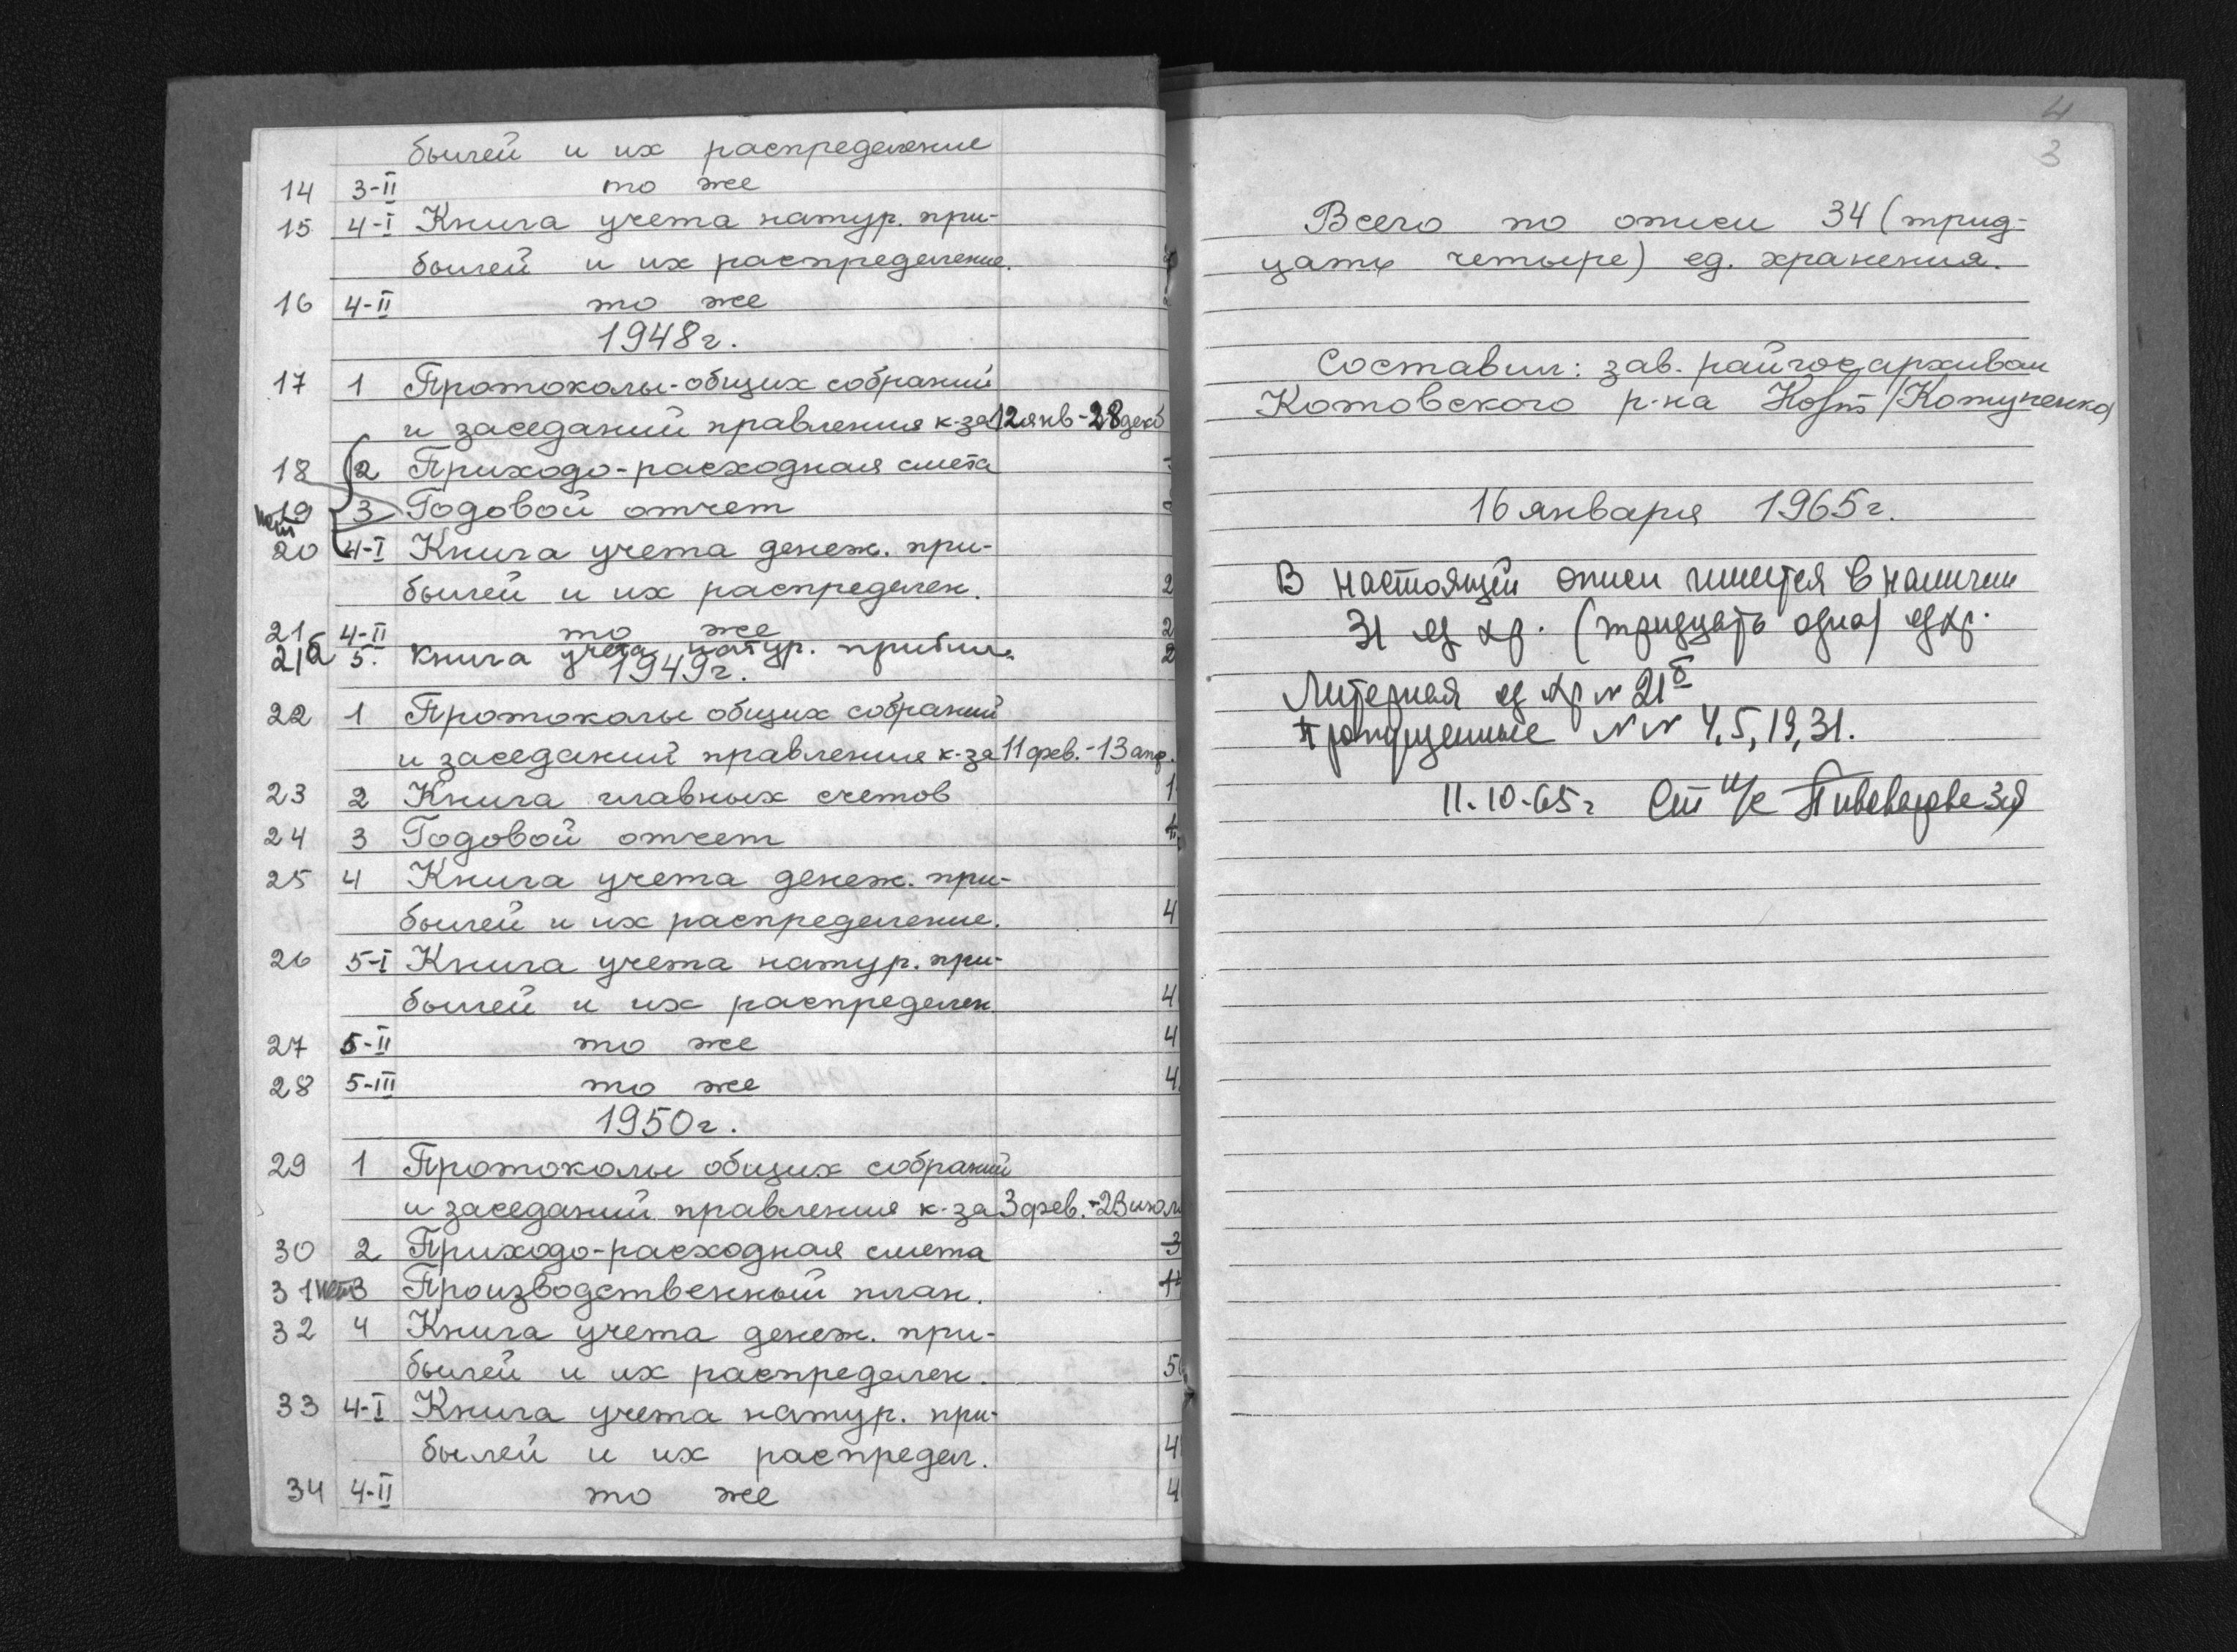 былей и их распределение
14 3-II то же
15 4-I Книга учета натур. при-
былей и их распределение.
16 4-II то же
1948г.
17 1 Протоколы общих собраний
и заседаний правления к-за 12 янв - 28 декб
18 2 Приходо-расходная смета
19 3 Годовой отчет
нет
20 4-I Книга учета денеж. при-
былей и их распределен. 2
21 4-II то же 2
21б 5. Книга учета натур. прибыл. 2
1949г.
22 1 Протоколы общих собраний
и заседаний правления к-за 11 фев. - 13 апр.
23 2 Книга главных счетов 1
24 3 Годовой отчет
25 4 Книга учета денеж. при-
былей и их распределение. 4
26 5-I Книга учета натур. при-
былей и их распределен. 4
27 5-II то же 4
28 5-III то же 4
1950г.
29 1 Протоколы общих собраний
и заседаний правления к-за 3 фев. - 23 июл
30 2 Приходо-расходная смета 3
31 нет 3 Производственный план.
32 4 Книга учета денеж. при-
былей и их распределен. 5
33 4-I Книга учета натур. при-
былей и их распредел. 4
34 4-II то же 4
4
3
Всего по описи 34 (трид-
цать четыре) ед. хранения.
Составил: зав. райгосархивом
Котовского р-на /Котупенко/
16 января 1965г.
В настоящей описи имеется в наличии
31 ед хр. (тридцать одна) ед хр.
Литерная ед хр № 21б
Пропущенные №№ 4, 5, 19, 31.
11.10-65г Ст н/с